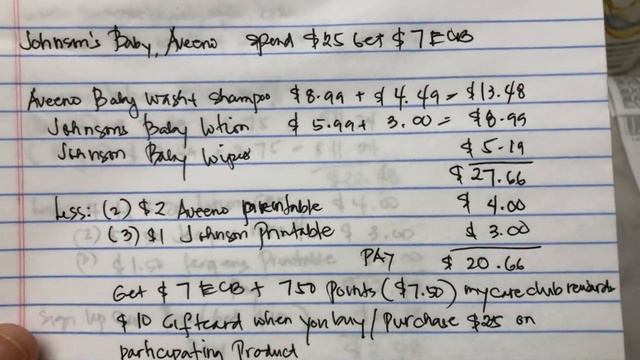 Johnson's Baby, Aveeno spend $25 Get $7 ECB
Aveeno Baby wash + shampoo $8.99 + $4.49 = $13.48
Johnsons Baby lotion $5.99 + 3.00 = $8.99
Johnson Baby wipes $5.19
$27.66
Less: (2) $2 Aveeno $4.00
(3) $1 Johnson Printable $3.00
PAY $20.66
Get $7 ECB + 750 Points ($7.50) mycareclub rewards
$10 Giftcard when you buy/Purchase $25 on
participating Product